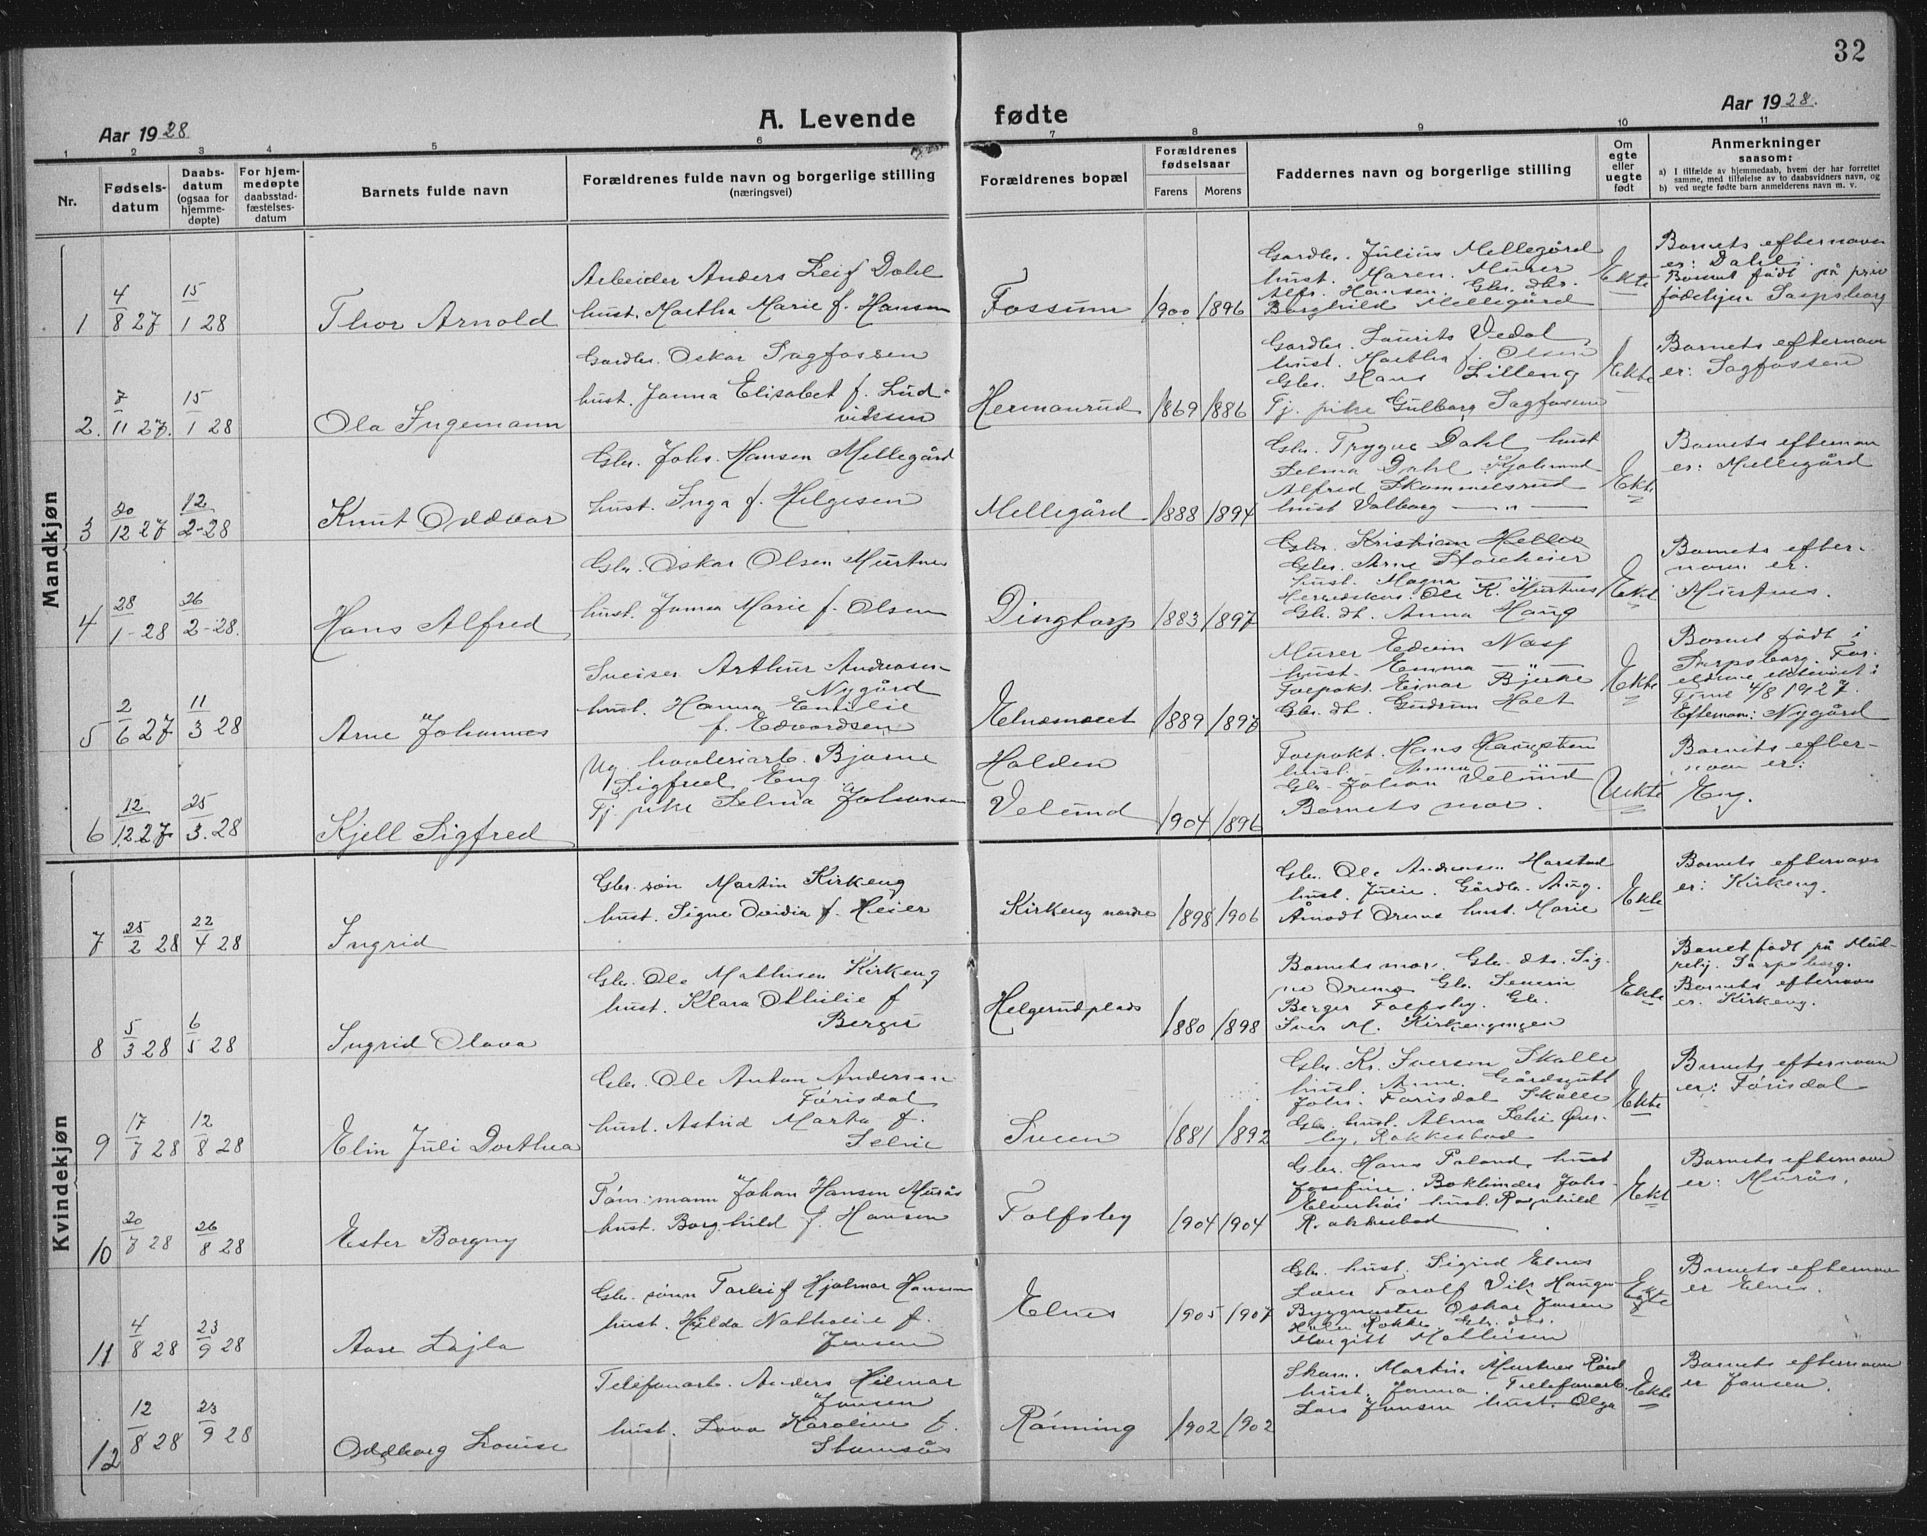 32
Aar 1928
A. Levende fødte
Aar 1928.
1 2 3 4 5 6 7 8 9 10 11
Nr.
Fødsels-
datum
Daabs-
datum
(ogsaa for
hjemme-
døpte)
For hjem-
medøpte
daabsstad-
fæstelses-
datum
Barnets fulde navn
Forældrenes fulde navn og borgerlige stilling
(næringsvei)
Forældrenes bopæl
Forældrenes
fødselsaar
Farens Morens
Faddernes navn og borgerlige stilling
Om
egte
eller
uegte
født
Anmerkninger
saasom:
a) I tilfælde av hjemmedaab, hvem der har forrettet
samme, med tilføielse av to daabsvidners navn, og
b) ved uegte fødte barn anmelderens navn m. v.
Mandkjøn
1 4/8 27 15/1 28 Thor Arnold
Arbeider Anders Leif Dahl
hust. Martha Marie f. Hansen
Fossum 1900 1896
Gardbr. Julius Mellegård
hust. Maren. Murer
Alfr. Hansen. Gbr. dtr.
Borghild Mellegård
Ekte
Barnets efternavn
er: Dahl.
Barnet født på priv
fødehjem Sarpsborg
2. 7/11 27. 15/1 28 Ola Ingemann
Gardbr. Oskar Sagfossen
hust. Janna Elisabet f. Lud-
viksen
Hermanrud 1869 1886
Gardbr. Laurits Vedal,
hust. Martha f. Olsen
Gbr. Hans Lilleng
Tj. pike Gulborg Sagfossen
Ekte
Barnets efternavn
er: Sagfossen
3 20/12 27 12/2-28 Knut Oddvar
Gbr. Johs. Hansen Mellegård
hust. Inga f. Helgesen
Mellegård 1888 1894
Gbr. Trygve Dahl hust
Selma Dahl.
Alfred Skammelsrud
hust Valborg — " —
Ekte
Barnets efternavn
er: Mellegård
4 28/1-28 26/2-28. Hans Alfred
Gbr. Oskar Olsen Murtnes
hust. Janna Marie f. Olsen
Dingtorp 1883 1897
Gbr. Kristian Helle
Gbr. Arne
hust. Magna
Ole K. Murtnes
Gbr. dt. Anna Haug
Ekte
Barnets efter-
navn er.
Murtnes.
5 2/6 27 11/3 28 Arne Johannes
Sveiser Arthur Andersen
Nygård
hust. Hanna Emilie
f. Edvardsen
1889 1897
Murer Edvin Næss
hust. Emma
Forpakt. Einar Bjerke
Gbr. dt. Gudrun Holt
Ekte
Barnet født i
Sarpsborg. For-
eldrene ektevie(t i
4/8 1927.
Efternavn: Nygård
6 12/12 27 25/3. 28 Kjell Sigfred
Ug. Bjarne
Sigfred Eng
Tj. pike Selma Johansen
Halden
Velund 1904 1896
Forpakt. Hans
hust. Anna
Gbr. Johan Velund
Barnets mor.
Uekte
Barnets efter-
navn er:
Eng.
Kvindekjøn
7 25/2 28 22/4 28 Ingrid
Gbr. søn Martin Kirkeng
hust. Signe Ovidia f. Heier
Kirkeng nordre 1898 1906
Gbr. Ole Andersen Harstad
hust. Julie. Gårdbr. Aug.
Åmodt Oremo hust. Marie
Ekte
Barnets efternavn
er: Kirkeng.
8 5/3 28 6/5 28 Ingrid Olava
Gbr. Ole Mathisen Kirkeng
hust. Klara Othilie f
Berger
Helgerudplads 1880 1898
Barnets mor. Gbr. dtr. Sig-
ne Oremo Gbr. Severin
Berger Folfsby. Gbr.
Iver M. Kirkengengen
Ekte
Barnet født på Mød-
rehj. Sarpsborg.
Barnets efternavn
er. Kirkeng.
9 17/7 28 12/8 28 Elin Juli Dorthea
Gbr. Ole Anton Andersen
Torisdal
hust. Astrid Marta f.
Selvie
Sveen 1881 1892
Gbr. Kr. Iversen Skolle
hust. Anna. Gårdsgutt
Johs. Torisdal Skolle
Gbr. hust. Alma Selvie Øver-
by, Rakkestad
Ekte
Barnets efternavn
er: Torisdal
10 20/7 28 26/8 28 Ester Borgny
Tøm.mann Johan Hansen Murås
hust. Borghild f. Hansen
Folfsby 1904 1904
Gbr. Hans hust
Josefine. Bokbinder Johs.
hust. Ragnhild
Rakkestad
Ekte
Barnets efternavn
er: Murås.
11 4/8 28 23/9 28 Aase Lajla
Gbr. sønn Torleif Hjalmar Hansen
hust. Hilda Nathalie f.
Jensen
Elnes 1905 1907
Gbr. hust. Sigrid Elnes
Lærer Torolf Vik Haugen
Byggmester Oskar Jensen
Rokke. Gbr. dtr.
Margitt Mathisen
Ekte
Barnets efternavn
er Elnes.
12 12/8 28 23/9 28 Oddborg Louise
Telefonarb. Anders Hilmar
Jansen
hust. Lova Karoline f.
Rønning 1902 1902
Skom. Martin Murtnes
hust. Janna. Telefonarb.
Lars Jansen hust. Olga
Ekte
Barnets efternavn
er Jansen.